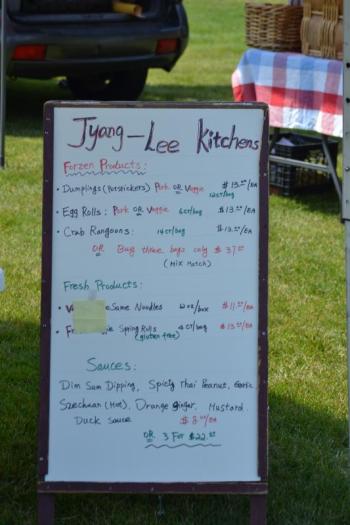 Jyang-Lee Kitchens
Forzen Products:
• Dumplings (Potstickers) Pork OR Veggie $13.00/EA
12ct/bag
• Egg Rolls: Pork OR Veggie 6ct/bag $13.00/EA
• Crab Rangoons: 14ct/bag $13.00/EA
OR Buy three bags only $37.00
(Mix Match)
Fresh Products:
• Same Noodles /box $11.00/EA
• Spring Rolls 4ct/bag $13.00/EA
(gluten free)
Sauces:
Dim Sum Dipping, Spicy Thai Peanut, Garlic
Szechuan (Hot), Orange ginger, Mustard
Duck sauce $8.00/EA
OR 3 For $22.00